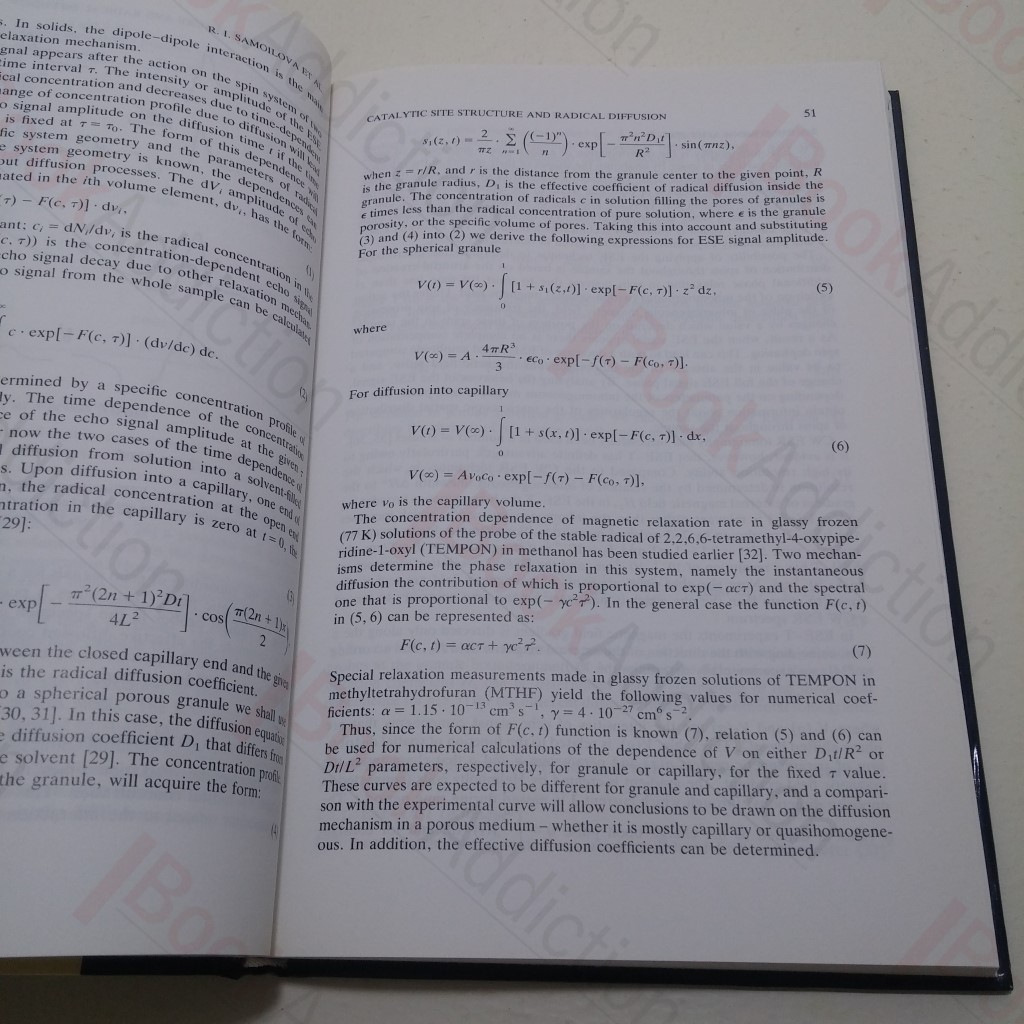 R. I. SAMOILOVA ET AL.
s. In solids, the dipole–dipole interaction is the main
elaxation mechanism.
gnal appears after the action on the spin system of two
time interval τ. The intensity or amplitude of the ESE
ical concentration and decreases due to time-dependent
ange of concentration profile due to diffusion will lead
o signal amplitude on the diffusion time t if the time
is fixed at τ = τ₀. The form of this dependence
fic system geometry and the parameters of radical
e system geometry is known, the dependences
out diffusion processes. The dVᵢ amplitude of echo
uated in the ith volume element, dvᵢ, has the form:
(τ) − F(c, τ)] · dvᵢ,
(1)
ant; cᵢ = dNᵢ/dvᵢ is the radical concentration in the
c, τ)) is the concentration-dependent echo signal
cho signal decay due to other relaxation mechan-
o signal from the whole sample can be calculated
∞
∫ c · exp[−F(c, τ)] · (dv/dc) dc.
(2)
ermined by a specific concentration profile of
ly. The time dependence of the concentration
ce of the echo signal amplitude at the given τ
r now the two cases of the time dependence of
l diffusion from solution into a solvent-filled
s. Upon diffusion into a capillary, one end of
n, the radical concentration at the open end
ntration in the capillary is zero at t = 0, the
[29]:
(3)
· exp[− π²(2n + 1)²Dt / 4L²] · cos(π(2n + 1)x / 2)
ween the closed capillary end and the given
is the radical diffusion coefficient.
o a spherical porous granule we shall use
[30, 31]. In this case, the diffusion equation
e diffusion coefficient D₁ that differs from
e solvent [29]. The concentration profile
the granule, will acquire the form:
(4)
CATALYTIC SITE STRUCTURE AND RADICAL DIFFUSION 51
s₁(z, t) = 2/πz · ∑ₙ₌₁^∞ ((−1)ⁿ/n) · exp[− π²n²D₁t / R²] · sin(πnz),
when z = r/R, and r is the distance from the granule center to the given point, R
is the granule radius, D₁ is the effective coefficient of radical diffusion inside the
granule. The concentration of radicals c in solution filling the pores of granules is
ϵ times less than the radical concentration of pure solution, where ϵ is the granule
porosity, or the specific volume of pores. Taking this into account and substituting
(3) and (4) into (2) we derive the following expressions for ESE signal amplitude.
For the spherical granule
V(t) = V(∞) · ∫₀¹ [1 + s₁(z,t)] · exp[−F(c, τ)] · z² dz, (5)
where
V(∞) = A · 4πR³/3 · ϵc₀ · exp[−f(τ) − F(c₀, τ)].
For diffusion into capillary
V(t) = V(∞) · ∫₀¹ [1 + s(x, t)] · exp[−F(c, τ)] · dx, (6)
V(∞) = Av₀c₀ · exp[−f(τ) − F(c₀, τ)],
where v₀ is the capillary volume.
The concentration dependence of magnetic relaxation rate in glassy frozen
(77 K) solutions of the probe of the stable radical of 2,2,6,6-tetramethyl-4-oxypipe-
ridine-1-oxyl (TEMPON) in methanol has been studied earlier [32]. Two mechan-
isms determine the phase relaxation in this system, namely the instantaneous
diffusion the contribution of which is proportional to exp(− αcτ) and the spectral
one that is proportional to exp(− γc²τ²). In the general case the function F(c, t)
in (5, 6) can be represented as:
F(c, t) = αcτ + γc²τ². (7)
Special relaxation measurements made in glassy frozen solutions of TEMPON in
methyltetrahydrofuran (MTHF) yield the following values for numerical coef-
ficients: α = 1.15 · 10⁻¹³ cm³ s⁻¹, γ = 4 · 10⁻²⁷ cm⁶ s⁻².
Thus, since the form of F(c, t) function is known (7), relation (5) and (6) can
be used for numerical calculations of the dependence of V on either D₁t/R² or
Dt/L² parameters, respectively, for granule or capillary, for the fixed τ value.
These curves are expected to be different for granule and capillary, and a compari-
son with the experimental curve will allow conclusions to be drawn on the diffusion
mechanism in a porous medium – whether it is mostly capillary or quasihomogene-
ous. In addition, the effective diffusion coefficients can be determined.